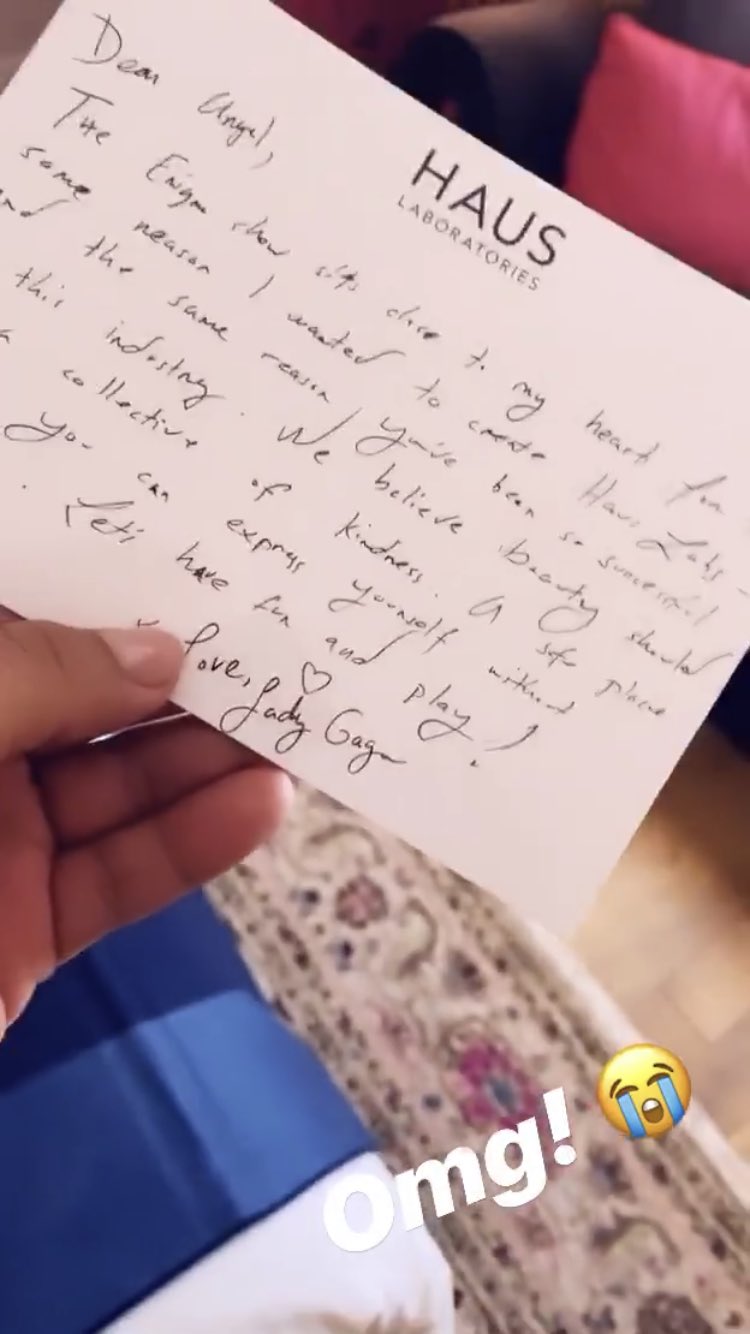 HAUS
LABORATORIES
Dear Angel,
The Enigma show sits close to my heart for
same reason I wanted to create Haus Labs -
and the same reason you've been so successful
this industry. We believe beauty should
a collective of kindness. A safe place
you can express yourself without
. Let's have fun and play!
Love, ♡
Lady Gaga
Omg! 😭